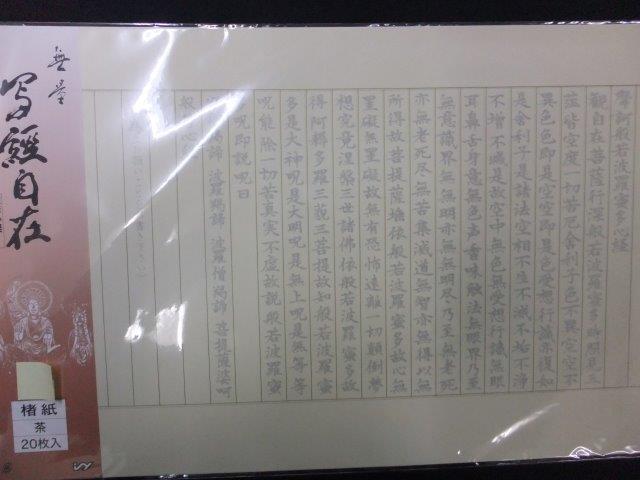 無量
写経自在
楮紙
茶
20枚入
摩訶般若波羅蜜多心経
観自在菩薩行深般若波羅蜜多時照見五
蘊皆空度一切苦厄舎利子色不異空空不
異色色即是空空即是色受想行識亦復如
是舎利子是諸法空相不生不滅不垢不浄
不増不減是故空中無色無受想行識無眼
耳鼻舌身意無色声香味触法無眼界乃至
無意識界無無明亦無無明尽乃至無老死
亦無老死尽無苦集滅道無智亦無得以無
所得故菩提薩埵依般若波羅蜜多故心無
罣礙無罣礙故無有恐怖遠離一切顛倒夢
想究竟涅槃三世諸佛依般若波羅蜜多故
得阿耨多羅三藐三菩提故知般若波羅蜜
多是大神呪是大明呪是無上呪是無等等
呪能除一切苦真実不虚故説般若波羅蜜
多呪即説呪曰
羯諦 波羅羯諦 波羅僧羯諦 菩提薩婆訶
般若心経